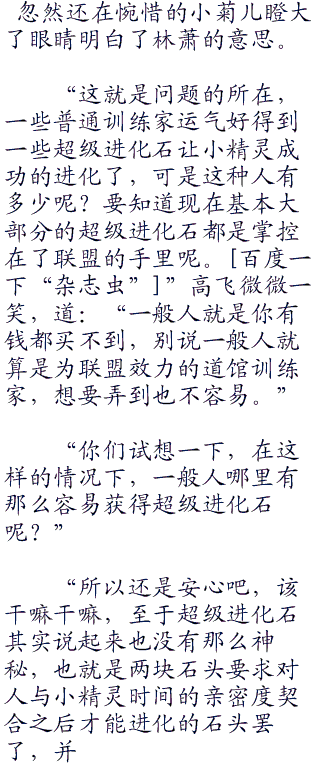 忽然还在惋惜的小菊儿瞪大
了眼睛明白了林萧的意思。
“这就是问题的所在，
一些普通训练家运气好得到
一些超级进化石让小精灵成
功的进化了，可是这种人有
多少呢？要知道现在基本大
部分的超级进化石都是掌控
在了联盟的手里呢。[百度一
下“杂志虫”]”高飞微微一
笑，道：“一般人就是你有
钱都买不到，别说一般人就
算是为联盟效力的道馆训练
家，想要弄到也不容易。”
“你们试想一下，在这
样的情况下，一般人哪里有
那么容易获得超级进化石
呢？”
“所以还是安心吧，该
干嘛干嘛，至于超级进化石
其实说起来也没有那么神
秘，也就是两块石头要求对
人与小精灵时间的亲密度契
合之后才能进化的石头罢
了，并